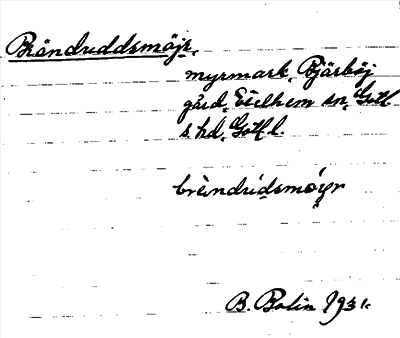 Bränduddsmöjr,
myrmark, Bjärböj
gård, Etelhem sn, Gotl.
s. hd, Gotl.
brèindúdsmóyr
B. Bolin 1931.